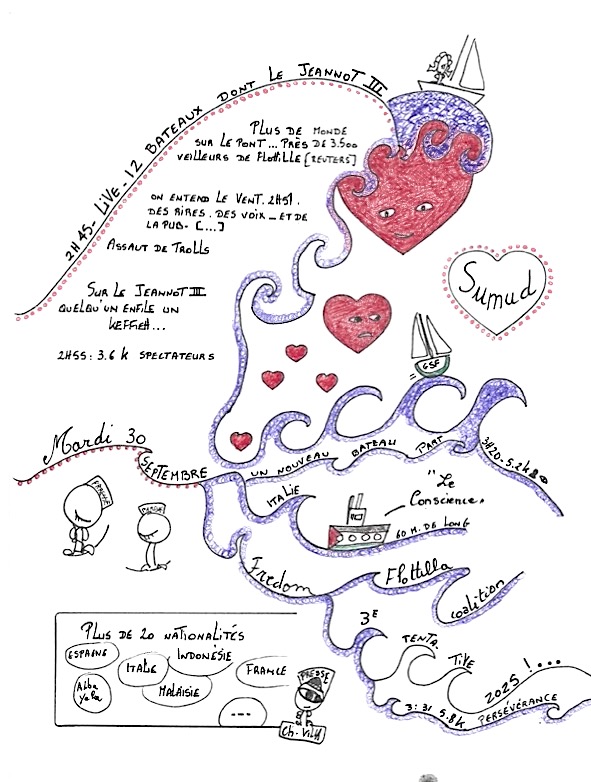 2H45 - LIVE - 12 BATEAUX DONT LE JEANNOT III
PLUS DE MONDE
SUR LE PONT... PRÈS DE 3.500
VEILLEURS DE FLOTILLE [REUTERS]
ON ENTEND LE VENT. 2H51.
DES RIRES. DES VOIX... ET DE
LA PUB. [...]
ASSAUT DE TROLLS
SUR LE JEANNOT III
QUELQU'UN ENFILE UN
KEFFIEH...
2H55 : 3.6 K SPECTATEURS
Sumud
GSF
Mardi 30
SEPTEMBRE
UN NOUVEAU BATEAU PART
3H20. 5.2k
ITALIE
"Le
Conscience"
60 M. DE LONG
Freedom Flottilla
coalition
3E
TENTA.
TIVE
2025 !...
3:31 5.8K PERSÉVÉRANCE
PLUS DE 20 NATIONALITÉS
ESPAGNE
ITALIE
INDONÉSIE
FRANCE
MALAISIE
---
PRESSE